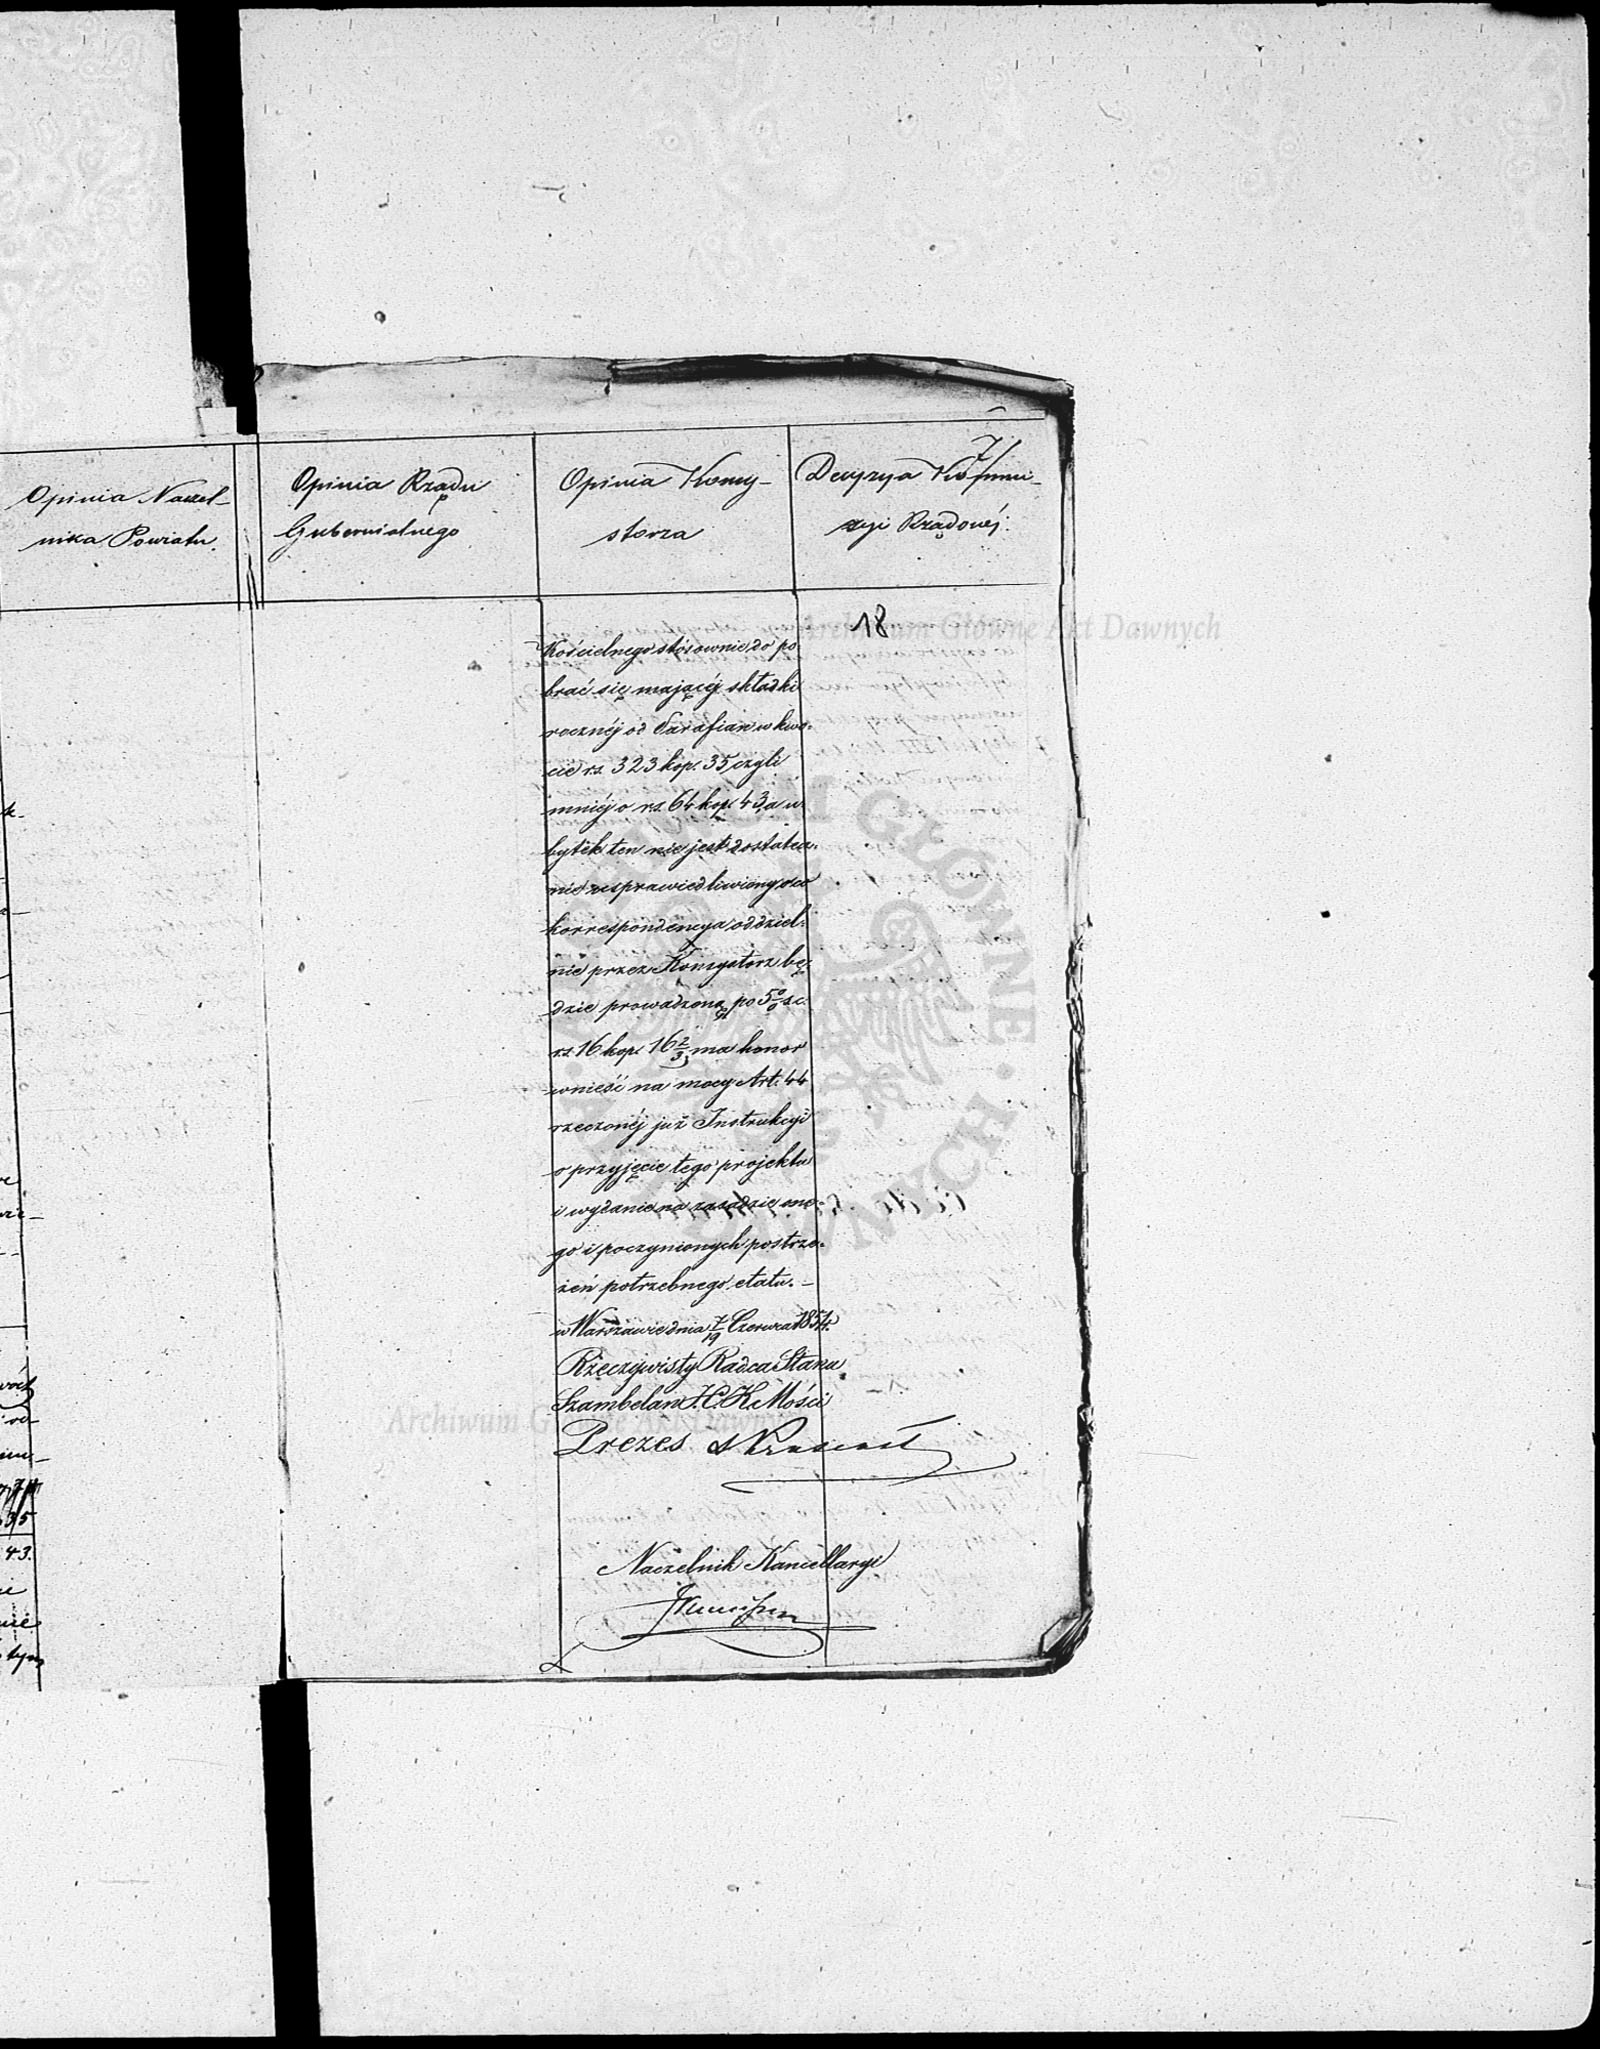 Opinia Naczel-
nika Powiatu.
Opinia Rządu
Gubernialnego
Opinia Konsy-
storza
7
Decyzya Kommis-
syi Rządowéj.
18
Kościelnego stósownie do po
brać się mającéj składki
rocznéj od Parafian w kwo-
cie rs. 323 kop. 35, czyli
mniéj o rs. 64 kop. 43, a u
bytek ten nie jest dostatecz-
nie usprawiedliwiony, o co
korrespondencya oddziel-
nie przez Konsystorz bę-
dzie prowadzoną, po 5% sc.
rs. 16 kop. 16 2/3, ma honor
wnieść na mocy Art. 44
rzeczonéj już Instrukcyi
o przyjęcie tego projektu
i wydanie na zasadzie one-
go i poczynionych postrze-
żeń potrzebnego etatu. -
w Warszawie dnia 7/19 Czerwca 1854 r.
Rzeczywisty Radca Stanu
Szambelan J. C. K. Mości
Prezes
Naczelnik Kancellaryi
43.
35
Archiwum Główne Akt Dawnych
Archiwum Główne Akt Dawnych